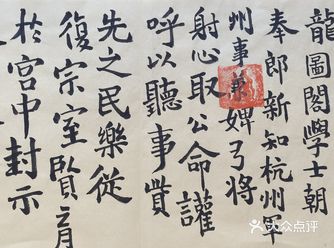 龍圖閣學士朝
奉郎新知杭州軍
州事婢弓將
射心取公命讙
呼以聽事貲
先之民樂從
復宗室月
於宮中封示
大众点评